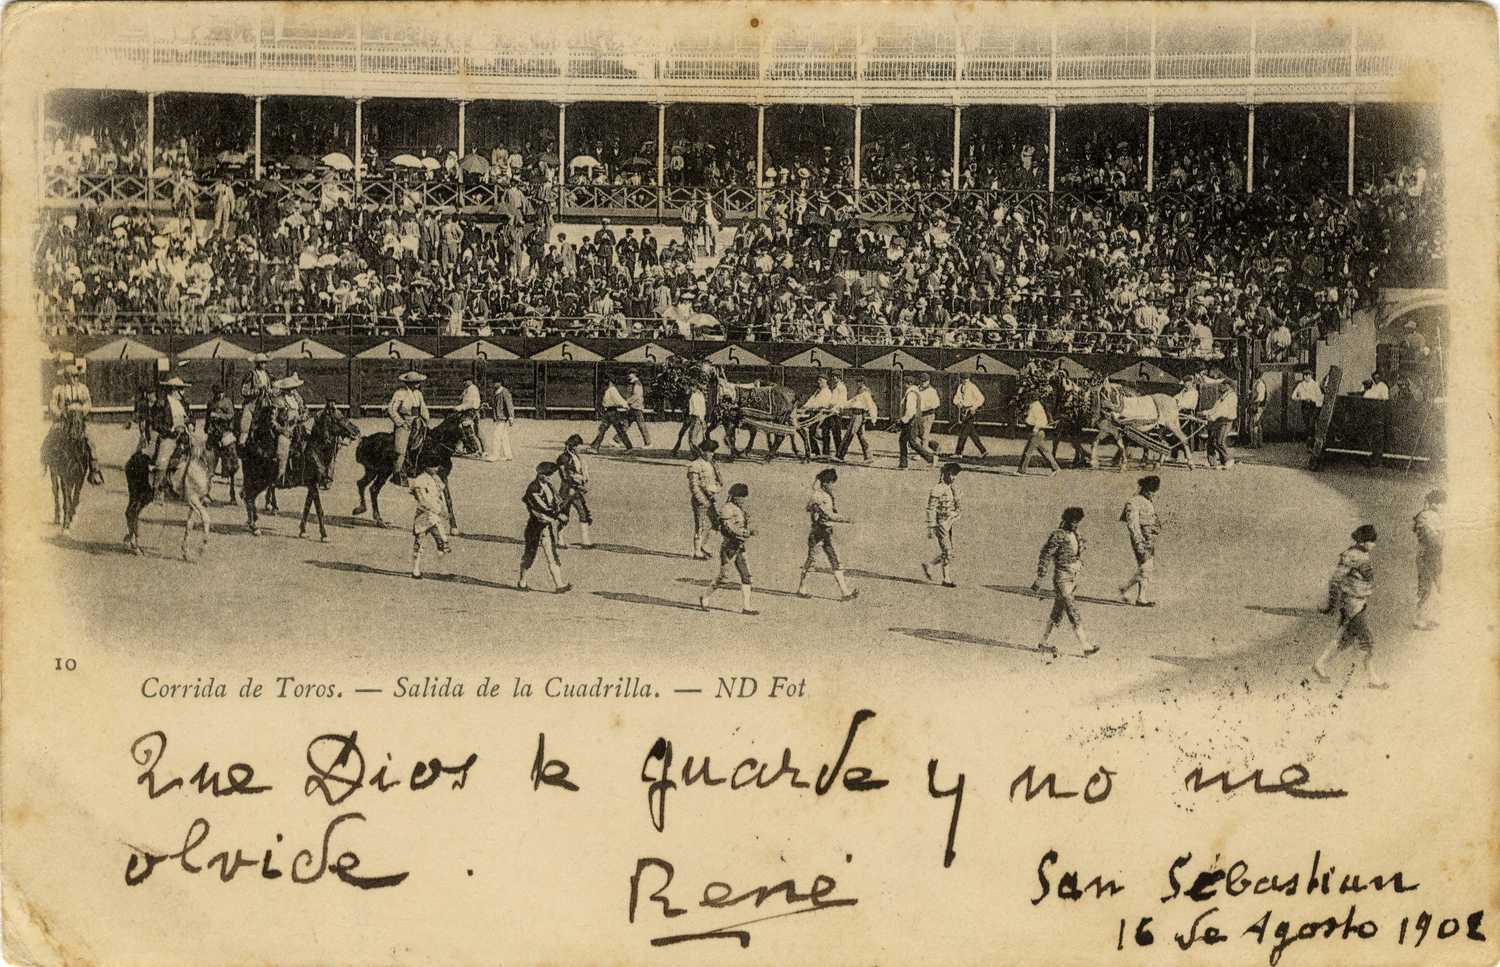 5 5 5 5 5 5 5 5 5 5 5
10
Corrida de Toros. — Salida de la Cuadrilla. — ND Fot
Que Dios le guarde y no me
olvide.
René
San Sebastian
16 de Agosto 1902